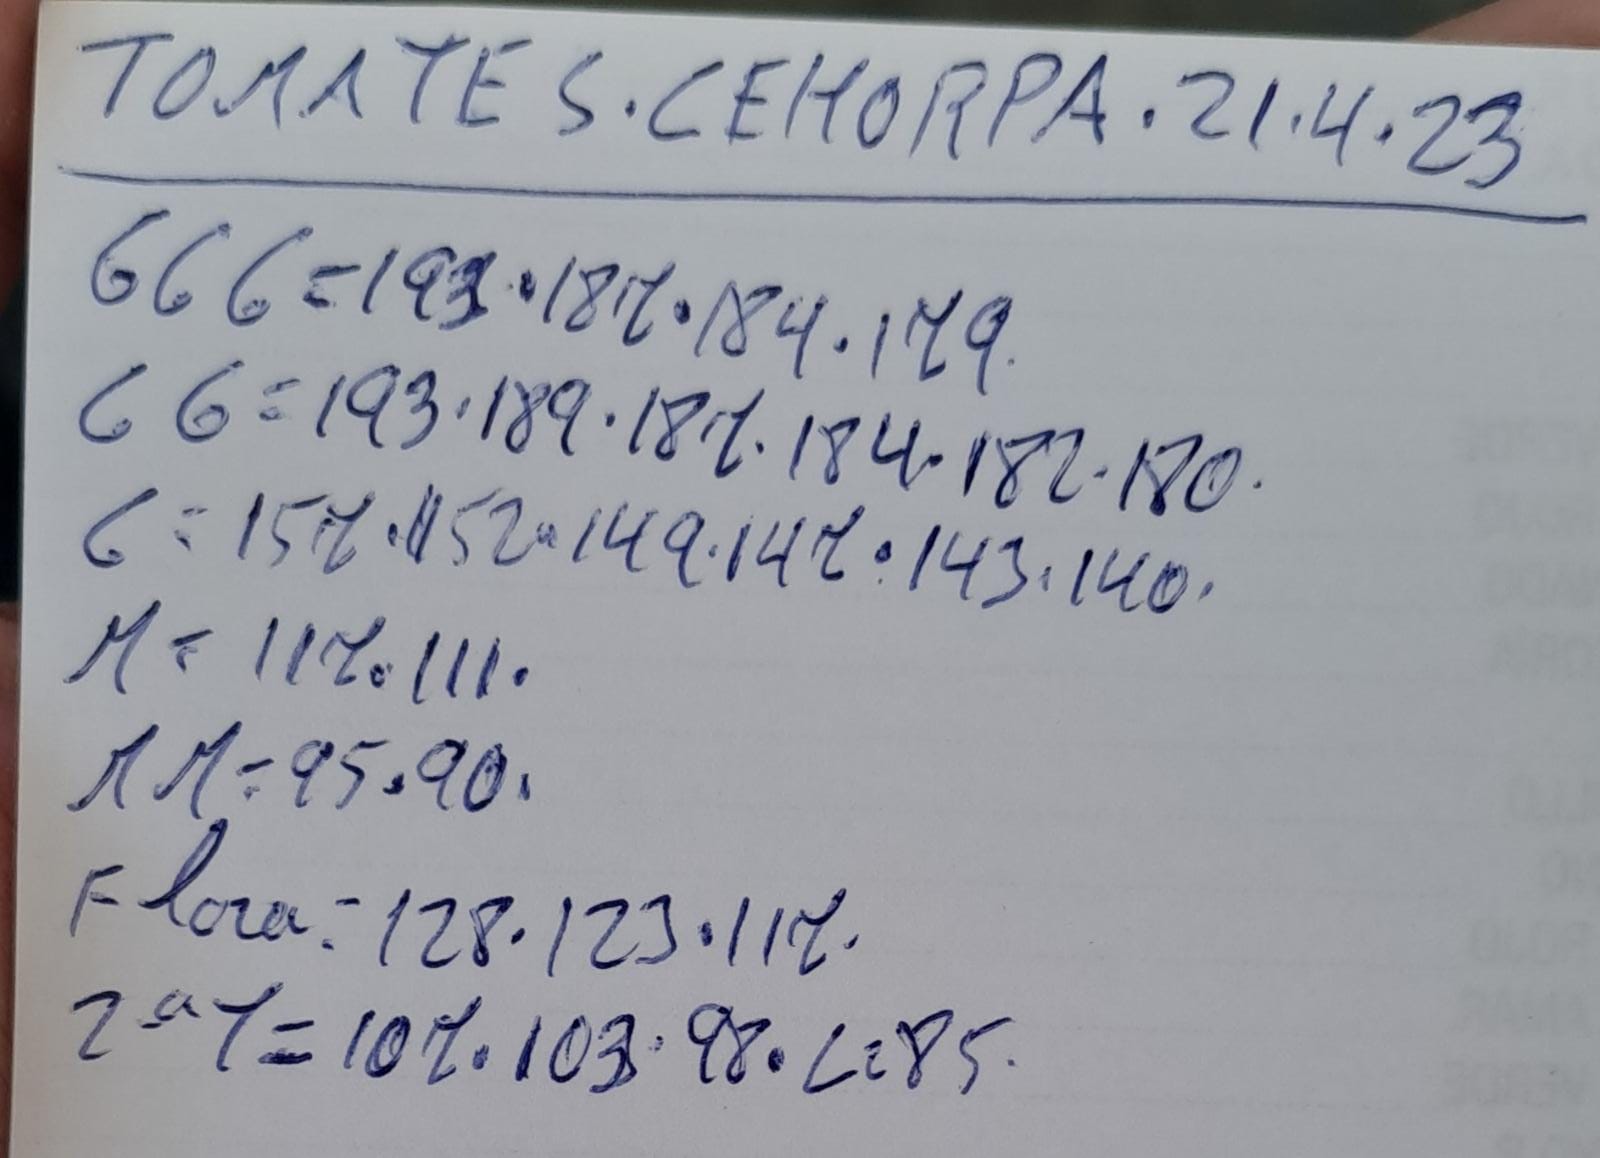 TOMATES.CEHORPA.21.4.23
GGG=193.187.184.179.
GG=193.189.187.184.182.180.
G=157.152.149.147.143.140.
M=117.111.
MM=95.90.
Flora=128.123.117.
2ªT=107.103.98.L=85.